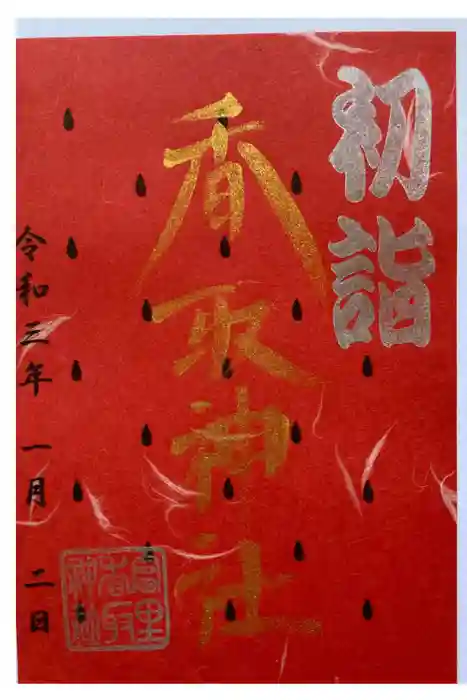 初詣
香取神社
令和三年 一月 二日
香取
神社